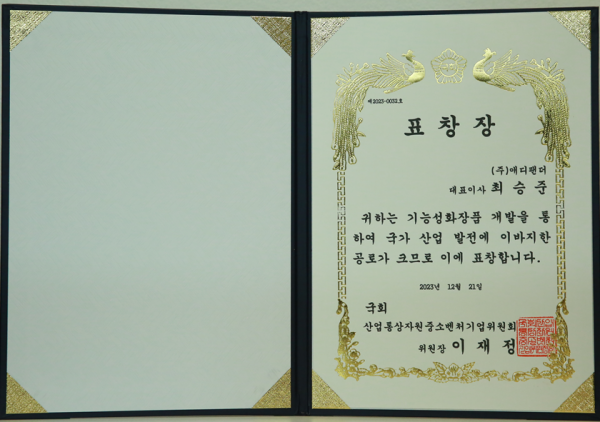 제2023-0032호
표 창 장
(주)애디팬더
대표이사 최 승 준
귀하는 기능성화장품 개발을 통
하여 국가 산업 발전에 이바지한
공로가 크므로 이에 표창합니다.
2023년 12월 21일
국회
산업통상자원중소벤처기업위원회
위원장 이 재 정